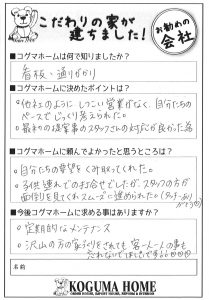 こだわりの家が
建ちました!
お勧めの
会社
■コグマホームは何で知りましたか？
看板・通りがかり
■コグマホームに決めたポイントは？
○他社のように しつこい営業がなく、自分たちの
ペースでじっくり考えられた。
○最初の提案書のスタッフさんの対応が良かった為
■コグマホームに頼んでよかったと思うところは？
○自分たちの希望をくみ取ってくれた。
○子供連れでの打合せでしたが、スタッフの方が
面倒を見てくれスムーズに進められた。
■今後コグマホームに求める事はありますか？
○定期的なメンテナンス
○沢山の方の家づくりをされても 客一人一人の事も
忘れないでほしいです
名前
KOGUMA HOME